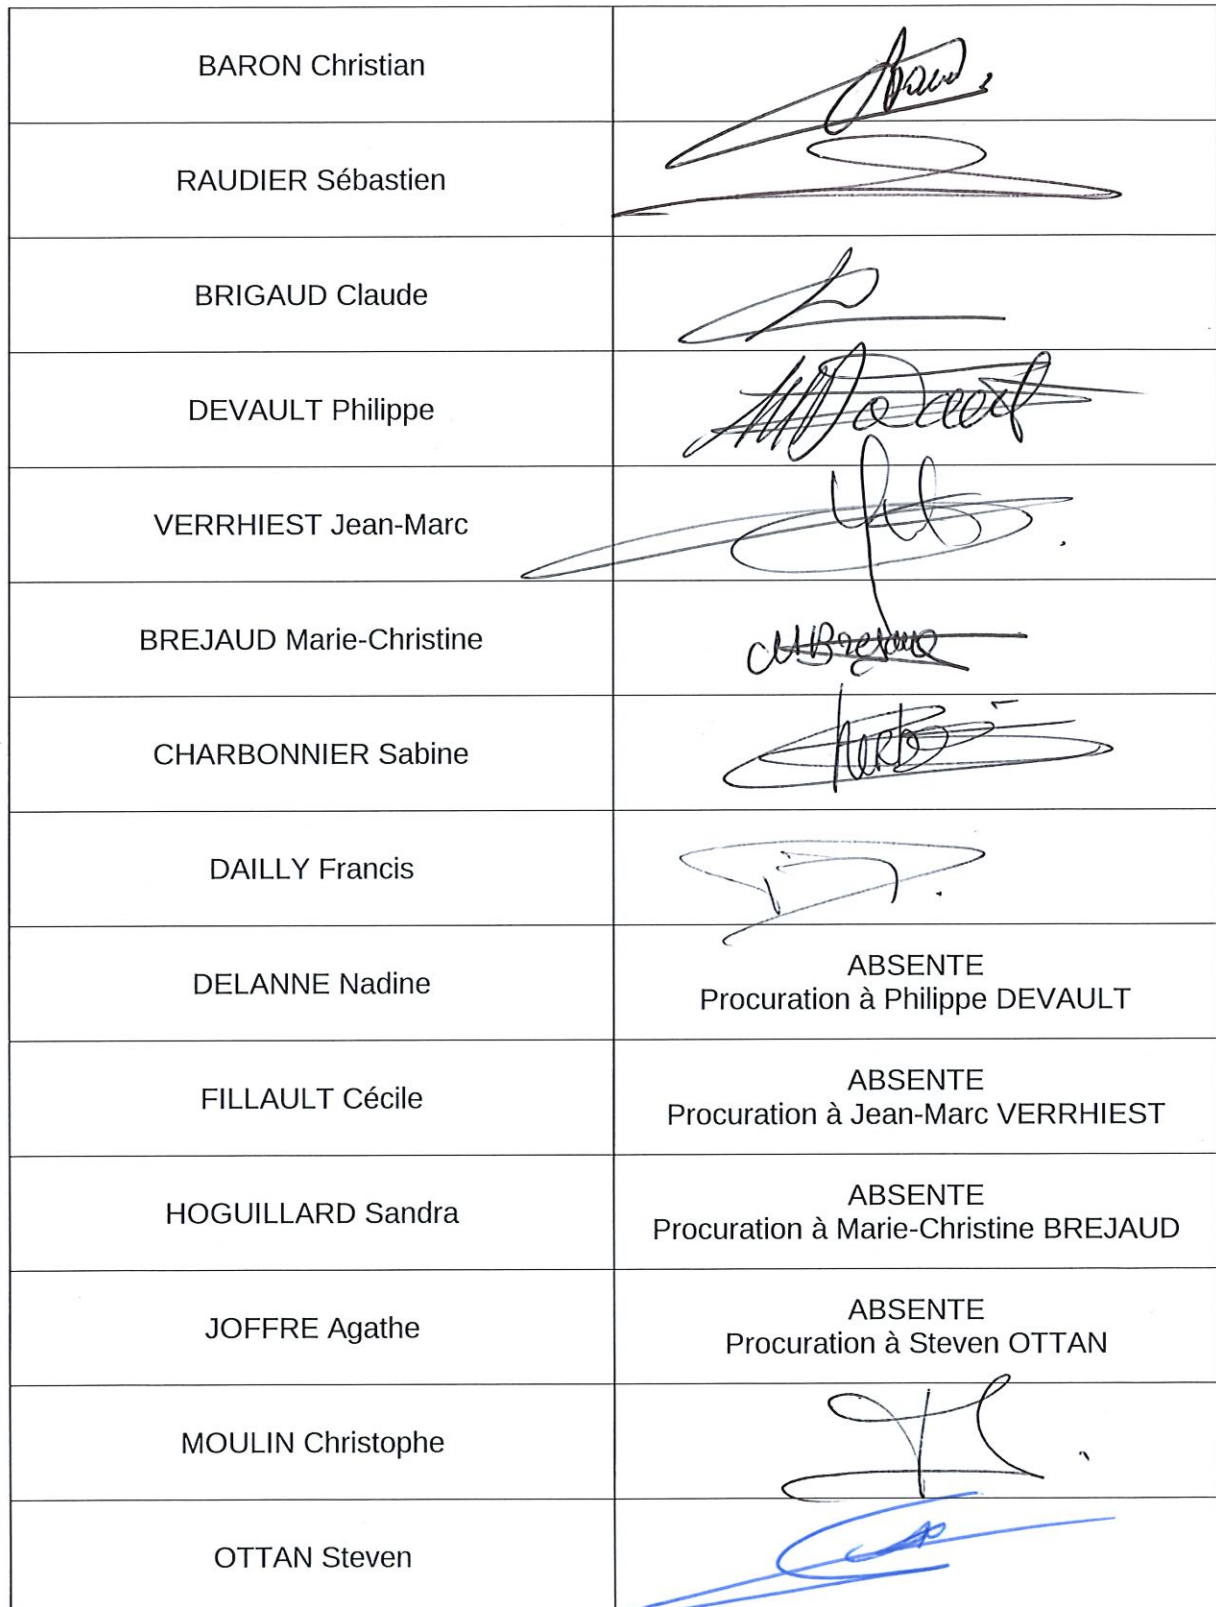 BARON Christian
RAUDIER Sébastien
BRIGAUD Claude
DEVAULT Philippe
VERRHIEST Jean-Marc
BREJAUD Marie-Christine
CHARBONNIER Sabine
DAILLY Francis
DELANNE Nadine
ABSENTE
Procuration à Philippe DEVAULT
FILLAULT Cécile
ABSENTE
Procuration à Jean-Marc VERRHIEST
HOGUILLARD Sandra
ABSENTE
Procuration à Marie-Christine BREJAUD
JOFFRE Agathe
ABSENTE
Procuration à Steven OTTAN
MOULIN Christophe
OTTAN Steven